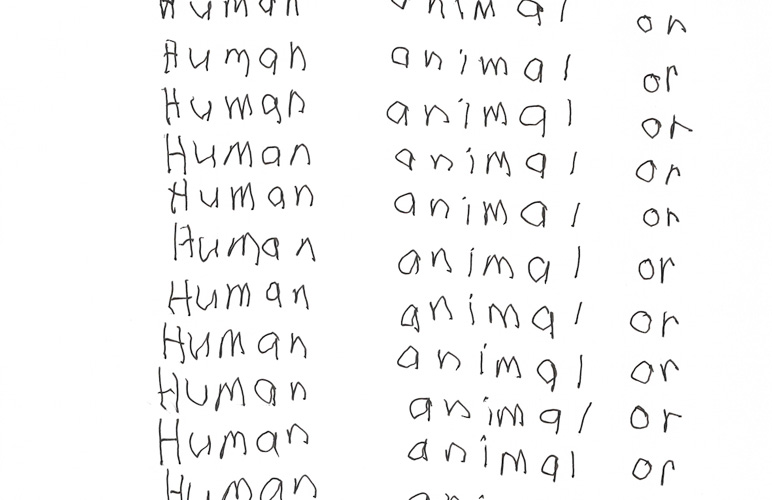 Human animal or
Human animal or
Human animal or
Human animal or
Human animal or
Human animal or
Human animal or
Human animal or
Human animal or
Human animal or
Human